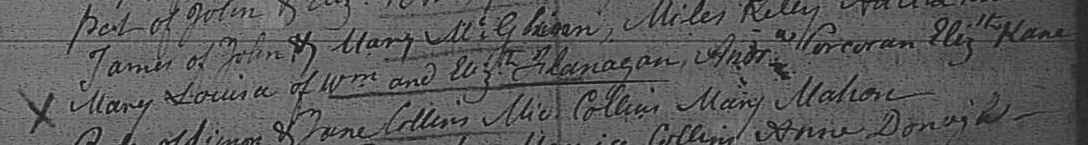 Pat of John & Eliz.
James of John & Mary McGlinn, Miles Reley
X Mary Louisa of Wm and Elizth Flanagan, Andrw Corcoran Elizth Kane
of Simon & Jane Collins Mic. Collins Mary Mahon
Collins Anne Donogh